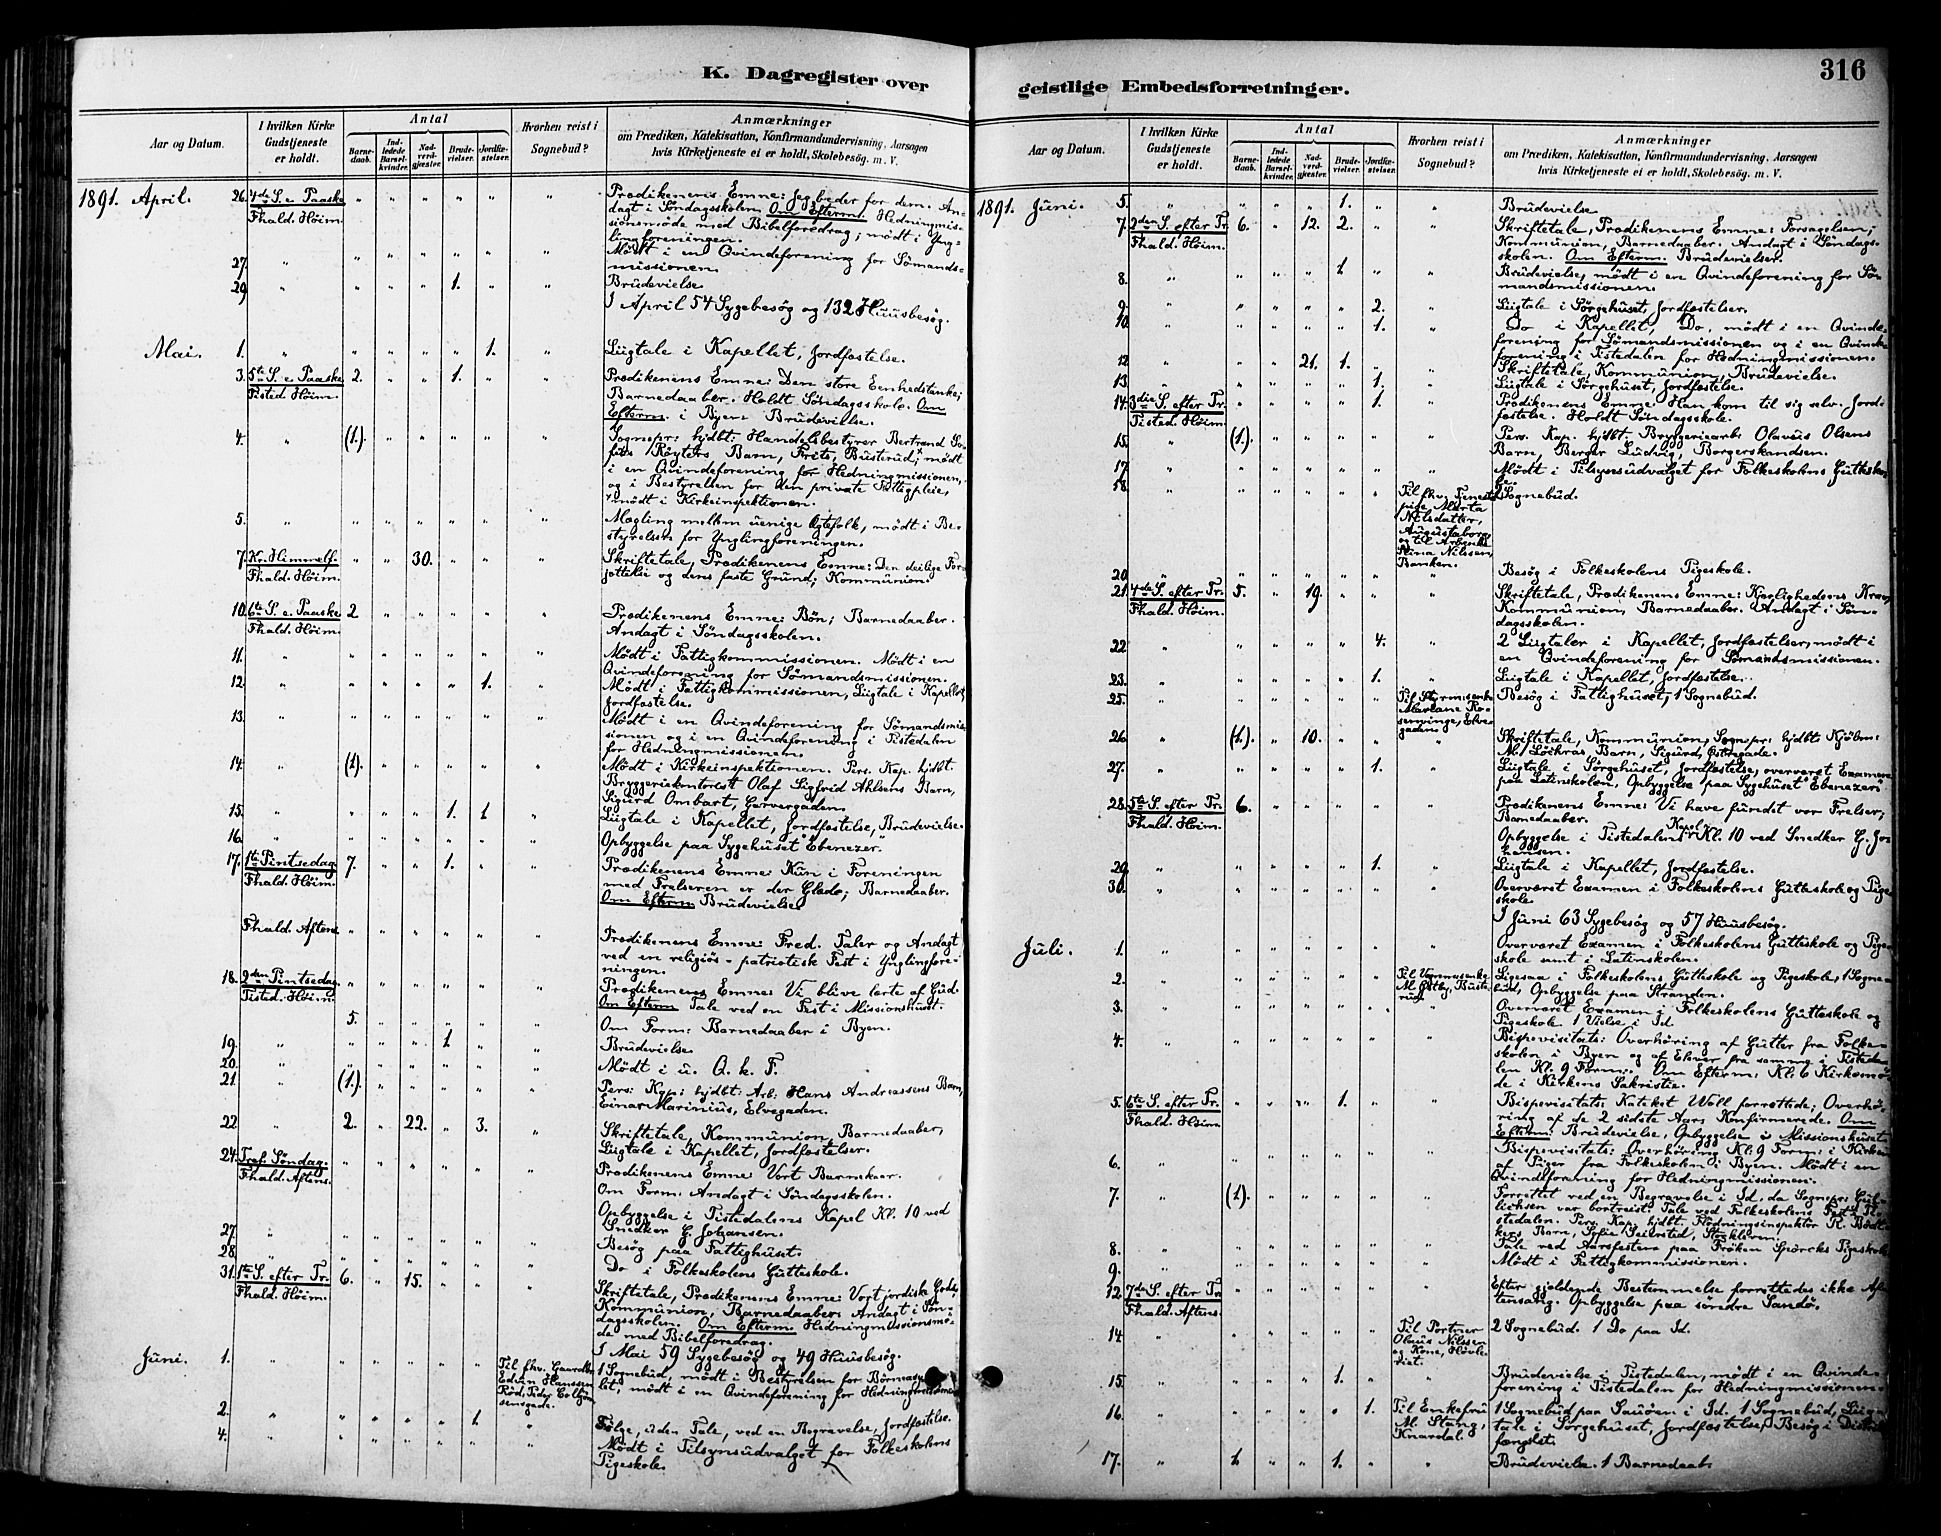 K. Dagregister over
Aar og Datum.
I hvilken Kirke Gudstjeneste er holdt.
Antal
Barne-daab.
Ind-ledede Barsel-kvinder.
Nad-verd-gjester.
Brude-vielser.
Jordfæ-stelser.
Hvorhen reist i Sognebud?
Anmærkninger
om Prædiken, Katekisation, Konfirmandundervisning, Aarsagen
hvis Kirketjeneste ei er holdt, Skolebesøg. m. V.
1891. April. 26. 4de S. e. Paaske Prædikenens Emne: Jeg beder for dem. An-
Fhald. Høim. dagt i Søndagsskolen. Om Efterm. Hedningmis-
sionsmøde med Bibelforedrag; mødt i Yng-
lingforeningen.
27. Mødt i en Qvindeforening for Sømands-
missionen.
29. 1. Brudevielse.
I April 54 Sygebesøg og 132 Huusbesøg.
Mai. 1. 1. Liigtale i Kapellet, Jordfæstelse.
3. 5te S. e. Paaske 2. 1. Prædikenens Emne: Den store Eenhedstanke;
Tisted. Høim. Barnedaaber. Holdt Søndagsskole. Om
Efterm. i Byen Brudevielse.
4. (1). Sognepr: hjdbt: Handelsbestyrer Bertrand
Røyters Barn, Frits, Busterud; mødt
i en Qvindeforening for Hedningmissionen,
og i Bestyrelsen for den private Fattigpleie,
mødt i Kirkeinspektionen.
5. Mægling mellem uenige Ægtefolk, mødt i Be-
styrelsen for Ynglingforeningen.
7. Kr. Himmelf. 30. Skriftetale, Prædikenens Emne: Den deilige For-
Fhald. Høim. jættelse og dens faste Grund; Kommunion.
10. 6te S. e. Paaske 2 Prædikenens Emne: Bøn; Barnedaaber.
Fhald. Høim. Andagt i Søndagsskolen.
11. Mødt i Fattigkommissionen. Mødt i en
Qvindeforening for Sømandsmissionen.
12. 1. Mødt i Fattigkommissionen, Liigtale i Kapellet,
Jordfæstelse.
13. Mødt i en Qvindeforening for Sømandsmis-
sionen og i en Qvindeforening i Tistedalen
for Hedningmissionen.
14. (1). Mødt i Kirkeinspektionen. Pers. Kap. hjdbt.
Bryggerikontorist Olaf Sigfrid Ahlsens Barn,
Sigurd Ombart, Garvergaden.
15. 1. 1 Liigtale i Kapellet, Jordfæstelse, Brudevielse.
16. Opbyggelse paa Sygehuset Ebenezer.
17. 1ste Pintsedag 7. 1. Prædikenens Emne: Kun i Foreningen
Fhald. Høim. med Frelseren er der Glæde; Barnedaaber.
Om Efterm. Brudevielse
Fhald. Aftens Prædikenens Emne: Fred. Taler og Andagt
ved en religiøs-patriotisk Fest i Ynglingfore-
ningen.
18. 2den Pintsedag. Prædikenens Emne: Vi blive lærte af Gud.
Tisted. Høim. Om Efterm. Tale ved en Fest i Missionshuset.
5. Om Form: Barnedaaber i Byen.
19. 1 Brudevielse.
20. Mødt i u. Q. k. F.
21. (1). Pers: Kap: hjdbt: Arb: Hans Andreassens Barn,
Einar Marinius, Elvegaden.
22 2. 22. 3. Skriftetale, Kommunion, Barnedaaber,
Liigtale i Kapellet, Jordfæstelser.
24. Tref. Søndag. Prædikenens Emne: Vort Barnekaar.
Fhald. Aftens. Om Form: Andagt i Søndagsskolen.
Opbyggelse i Tistedalens Kapel Kl. 10 ved
Snedker G. Johansen.
27. Besøg paa Fattighuset.
28. Do i Folkeskolens Gutteskole.
31. 1ste S. efter Tr. 6. 15. Skriftetale, Prædikenens Emne: Vort jordiske Gods,
Fhald. Høim. Kommunion, Barnedaaber. Andagt i Søn-
dagsskolen. Om Efterm. Hedningmissionsmø-
de med Bibelforedrag.
I Mai 59 Sygebesøg og 49 Huusbesøg.
Juni. 1. Til fhv. 1 Sognebud, mødt i Bestyrelsen for Børneasy-
Edvin Hanssen let, mødt i en Qvindeforening for Hedningmissionen.
Rød, Peder
sensgade.
2. 1 Følge, uden Tale, ved en Begravelse, Jordfæstelse.
4. Mødt i Tilsynsudvalget for Folkeskolens
Pigeskole.
geistlige Embedsforretninger.
316
Aar og Datum.
I hvilken Kirke Gudstjeneste er holdt.
Antal
Barne-daab.
Ind-ledede Barsel-kvinder.
Nad-verd-gjester.
Brude-vielser.
Jordfæ-stelser.
Hvorhen reist i Sognebud?
Anmærkninger
om Prædiken, Katekisation, Konfirmandundervisning, Aarsagen
hvis Kirketjeneste ei er holdt, Skolebesøg. m. V.
1891. Juni. 5. 1. Brudevielse.
7. 2den S. efter Tr. 6. 12. 2. Skriftetale, Prædikenens Emne: Forsagelsen;
Fhald. Høim. Kommunion, Barnedaaber. Andagt i Søndags-
skolen. Om Efterm. Brudevielser.
8. 1 Brudevielse, mødt i en Qvindeforening for Sø-
mandsmissionen.
9. 2. Liigtale i Sørgehuset, Jordfæstelser.
10. 1. Do i Kapellet, Do, mødt i en Qvinde-
forening for Sømandsmissionen og i en Qvinde-
forening i Tistedalen for Hedningmissionen.
12 21. 1. Skriftetale, Kommunion, Brudevielse.
13. 1. Liigtale i Sørgehuset, Jordfæstelse.
14. 3die S. efter Tr. 1. Prædikenens Emne: Han kom til sig selv. Jord-
Tisted. Høim. fæstelse. Holdt Søndagsskole.
15. (1). Pers. Kap. hjdbt. Bryggeriearb. Olavus Olsens
Barn, Berger Ludvig, Borgerskandsen.
17. Mødt i Tilsynsudvalget for Folkeskolens Gutteskole.
18. Til fhv. Tjeneste- 1 Sognebud.
pige Marta
Nilsdatter,
Augustaborg
og til Arbmd
Stina Nilssen,
Banken.
20. Besøg i Folkeskolens Pigeskole.
21. 4de S. efter Tr. 5. 19 Skriftetale, Prædikenens Emne: Kjærlighedens Krav,
Fhald. Høim. Kommunion, Barnedaaber. Andagt i Søn-
dagsskolen.
22 4. 2 Liigtaler i Kapellet, Jordfæstelser, mødt i
en Qvindeforening for Sømandsmissionen.
23. 1. Liigtale i Kapellet, Jordfæstelse.
25. Til Styrmsenke Besøg i Fattighuset, 1 Sognebud.
Marlane Ro-
senvinge, Elve-
gaden.
26. (1). 10. Skriftetale, Kommunion, Sognepr: hjdbt. Kjøbm:
M. Løckras Barn, Sigurd, Østregade.
27. 1. Liigtale i Sørgehuset, Jordfæstelse, overværet Examen
paa Latinskolen, Opbyggelse paa Sygehuset Ebenezer.
28. 5te S. efter Tr. 6. Prædikenens Emne: Vi have fundet vor Frelser,
Fhald. Høim. Barnedaaber.
Opbyggelse i Tistedalens Kapel Kl. 10 ved Snedker G. Jo-
hansen.
29. 1. Liigtale i Kapellet, Jordfæstelse.
30. Overværet Examen i Folkeskolens Gutteskole og Pige-
skole.
I Juni 63 Sygebesøg og 57 Huusbesøg.
Juli. 1. Overværet Examen i Folkeskolens Gutteskole og Pige-
skole samt i Latinskolen.
2. Til Vognmsenke Ligesaa i Folkeskolens Gutteskole og Pigeskole, 1 Sogne-
M. Østby, Buste- bud, Opbyggelse paa Stranden.
rud.
3. Overværet Examen i Folkeskolens Gutteskole og
Pigeskole. 1 Vielse i Id.
4. Bispevisitats: Overhøring af Gutter fra Folke-
skolen i Byen og af Elever fra samme i Tisteda-
len Kl. 9 Form: Om Efterm: Kl: 6 Kirkemø-
de i Kirkens Sakristie.
5. 6te S. efter Tr. 1. Bispevisitats: Kateket Woll forrettede; Overhø-
Fhald. Høim. ring af de 2 sidste Aars Konfirmerede. Om
Efterm: Brudevielse, Opbyggelse i Missionshuset.
6. Bispevisitats: Overhøring Kl: 9 Form: i Kirken
af Piger fra Folkeskolen i Byen. Mødt i en
Qvindeforening for Hedningmissionen.
7. (1). Forrettet ved en Begravelse i Id, da Sognepr: Gul-
lichsen var bortreist. Tale ved Folkeskolens Fest i Ti-
stedalen. Pers. Kap. hjdbt. Flødningsinspektør R. Bødt-
kers Barn, Sofie Seilsted,
8. Tale ved Aarsfesten paa Frøken Spørcks Pigeskole.
9. Mødt i Fattigkommissionen.
12. 7de S. efter Tr. Efter gjældende Bestemmelse forrettedes ikke Af-
Fhald. Aftens. tensang. Opbyggelse paa søndre Sandø.
14 Til Portner 2 Sognebud. 1 Do paa Id.
Olaus Nilssen
og Kone, Høvle-
riet.
15. 1. Brudevielse i Tistedalen, mødt i en Qvinde-
forening i Tistedalen for Hedningmissionen.
16. 1. Til Enkefru 1 Sognebud paa Sauøen i Id. 1 Sognebud, Liig-
M. Stang, tale i Sørgehuset, Jordfæstelse, Besøg i Distrikts-
Knardal. fængslet.
17. 1 1. Brudevielse. 1 Barnedaab.